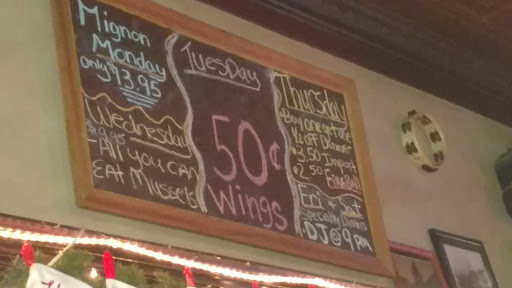 Mignon
Monday
only $13.95
Wednesday
$9.95
-All you can
Eat Mussels
Tuesday
50¢
Wings
Thursday
•Buy one get one
1/2 off Dinner
•3.50 Import
•2.50 Fireball
Fri + Sat
Specialty Dinners
•DJ @ 9pm